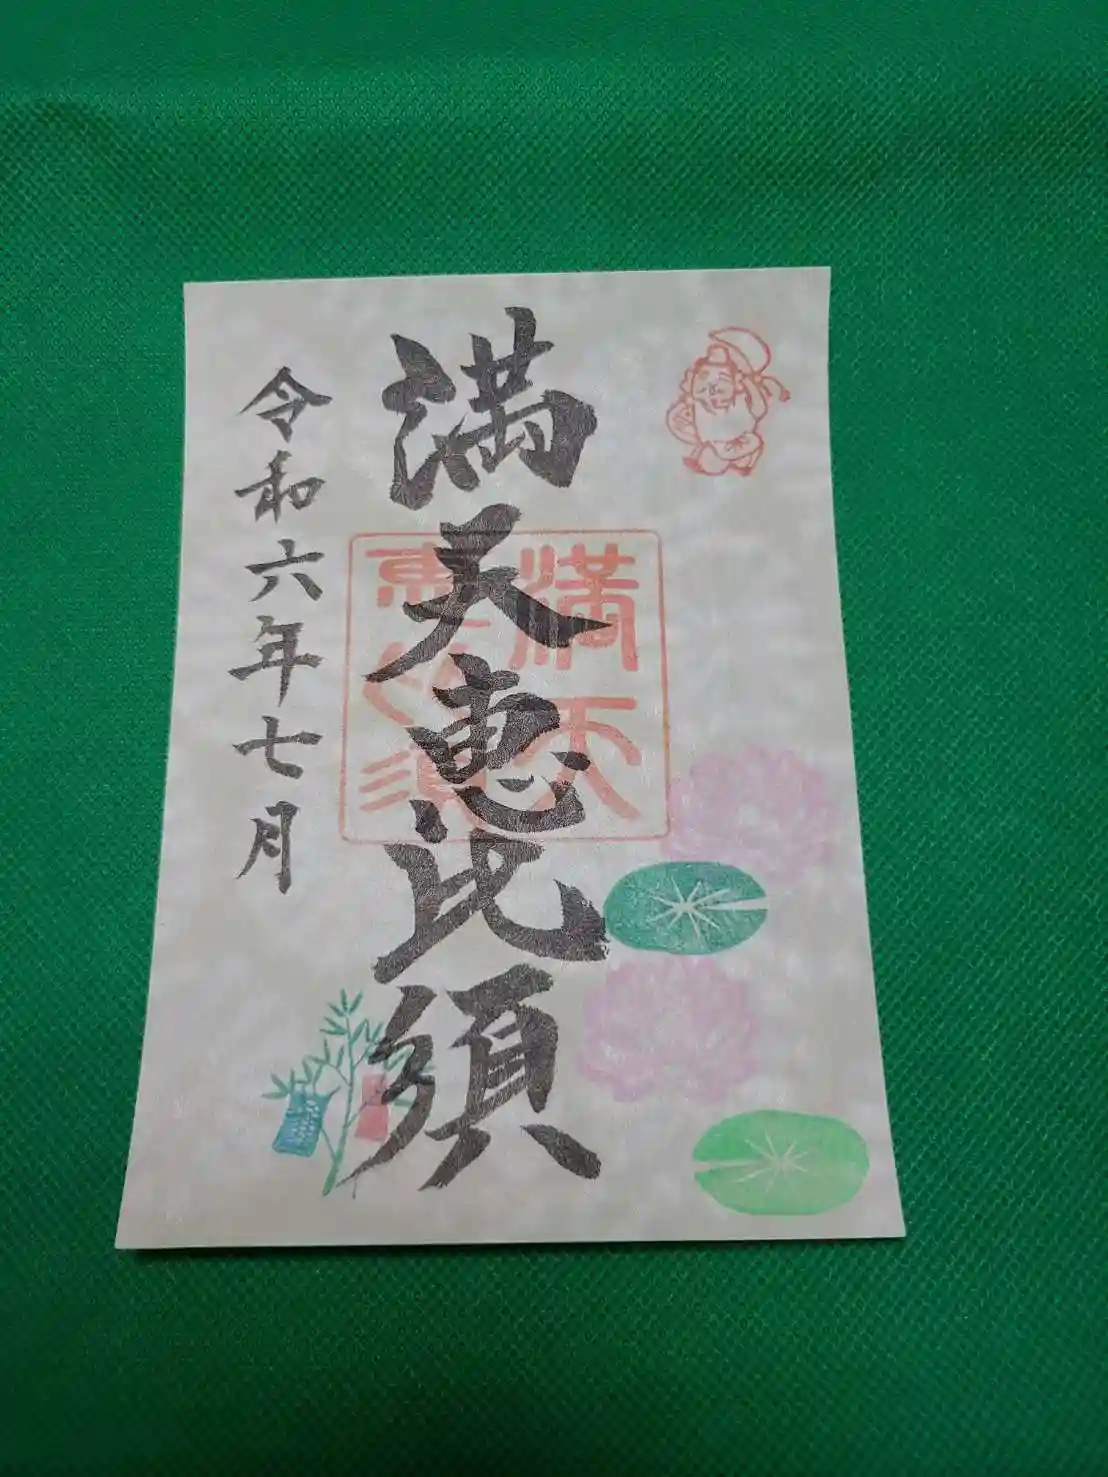 満天恵比須
満天
恵比須
令和六年七月